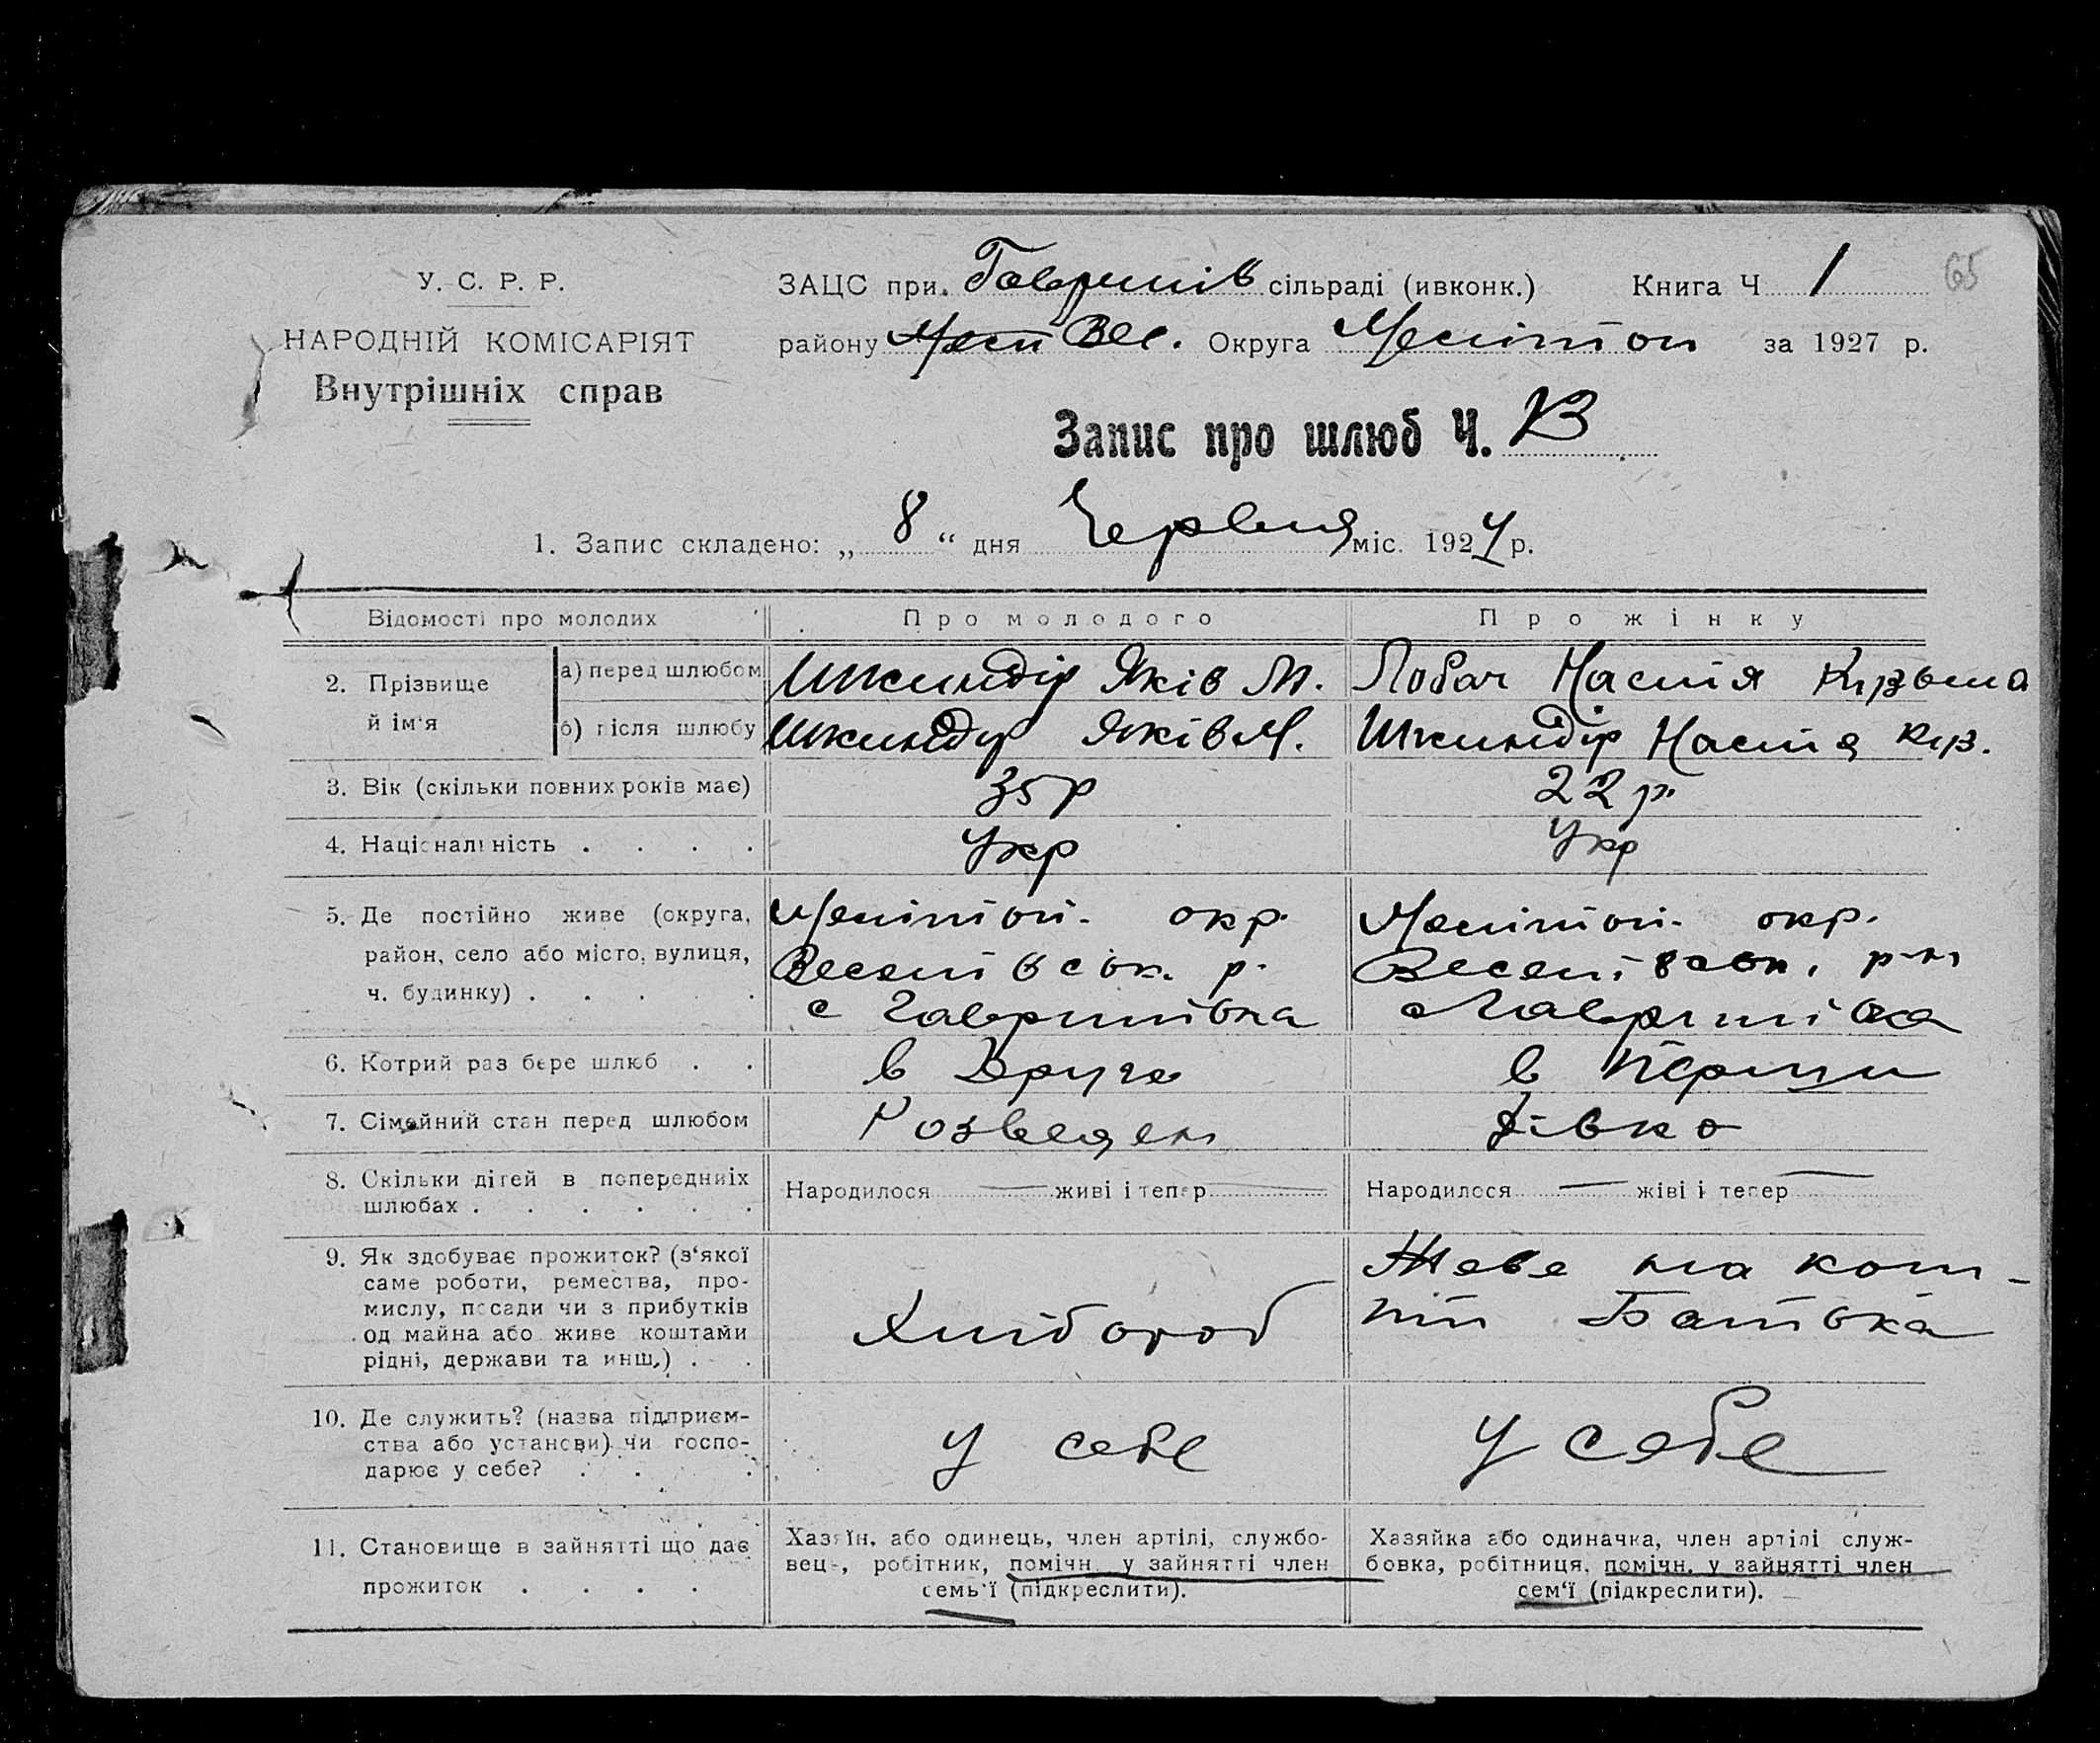 У. С. Р. Р.
НАРОДНІЙ КОМІСАРІЯТ
Внутрішніх справ
ЗАЦС при Гаврилів сільраді (ивконк.) Книга Ч 1 65
району Вес. Округа Мелітоп за 1927 р.
Запис про шлюб Ч. 13
1. Запис складено: „ 8 “ дня Червня міс. 1927 р.
Відомості про молодих Про молодого Про жінку
2. Прізвище й ім'я
а) перед шлюбом Шкиндір Яків М. Лобач Настія Кузьма
б) після шлюбу Шкиндір Яків М. Шкиндір Настія Куз.
3. Вік (скільки повних років має) 35 р 22 р.
4. Національність . . . . Укр Укр
5. Де постійно живе (округа, Мелітоп. окр. Мелітоп. окр.
район, село або місто, вулиця, Веселівськ. р. Веселівськ. р-н
ч. будинку) . . . . . с Гаврилівка с Гаврилівка
6. Котрий раз бере шлюб . . в Друге в Перши
7. Сімейний стан перед шлюбом Розведен Дівка
8. Скільки дітей в попередніх Народилося — живі і тепер — Народилося — жіві і тепер —
шлюбах . . . . . .
9. Як здобуває прожиток? (з'якої Жеве на кош-
саме роботи, ремества, про-
мислу, посади чи з прибутків Хлібороб Батька
од майна або живе коштами
рідні, держави та инш.) . .
10. Де служить? (назва підприєм-
ства або установи) чи госпо- у себе у себе
дарює у себе? . . .
11. Становище в зайнятті що дає Хазяїн, або одинець, член артілі, службо- Хазяйка або одиначка, член артілі служ-
прожиток . . . . вець, робітник, помічн. у зайнятті член бовка, робітниця, помічн. у зайнятті член
семь'ї (підкреслити). сем'ї (підкреслити).